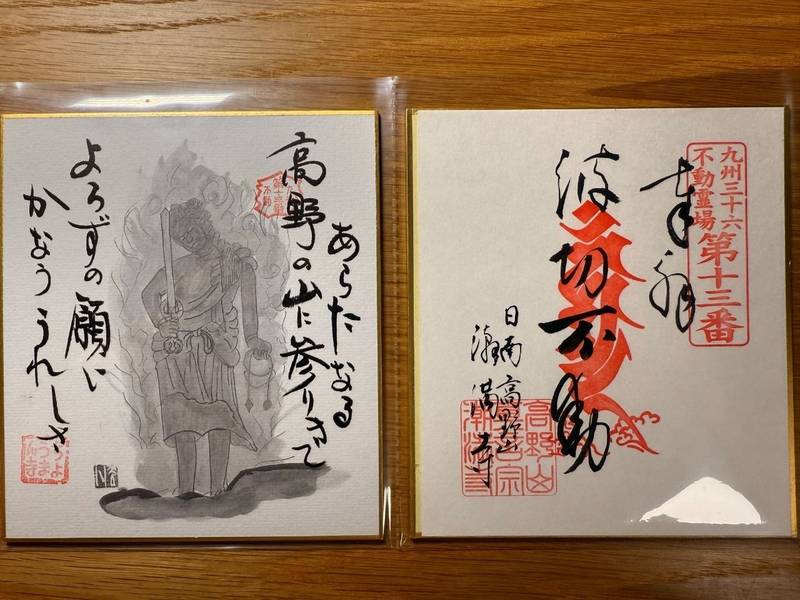 あらたなる
高野の山に参りきて
よろずの願い
かなううれしさ
九州三十六
不動霊場
第十三番
奉拝
波切不動
日南 高野山
潮満寺
高野山
潮満寺